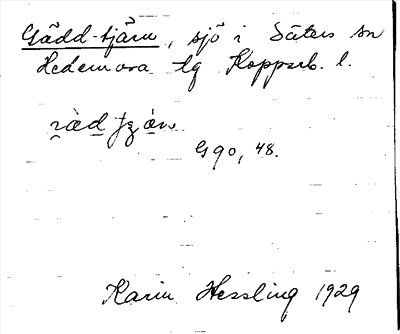 Gädd-tjärn, sjö i Säters sn
Hedemora tg Kopparb. l.
G 90, 48.
Karin Hessling 1929